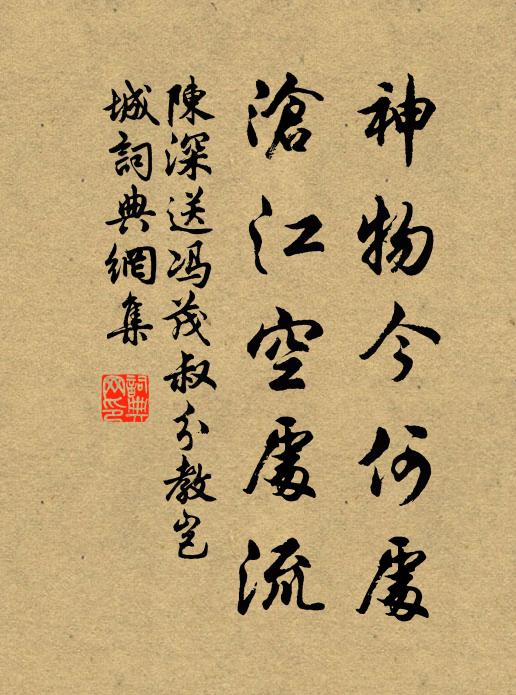 神物今何處
滄江空處流
陳深送馮茂叔分教岂
城詞典網集
詞典
网印